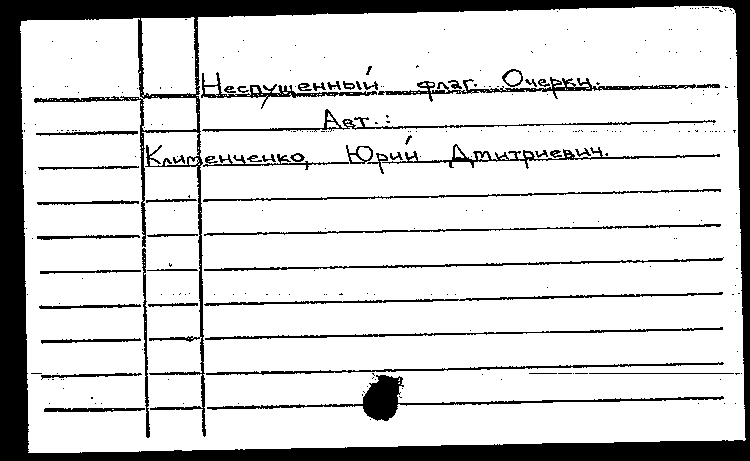 Неспущенный флаг. Очерки.
Авт.:
Клименченко, Юрий Дмитриевич.